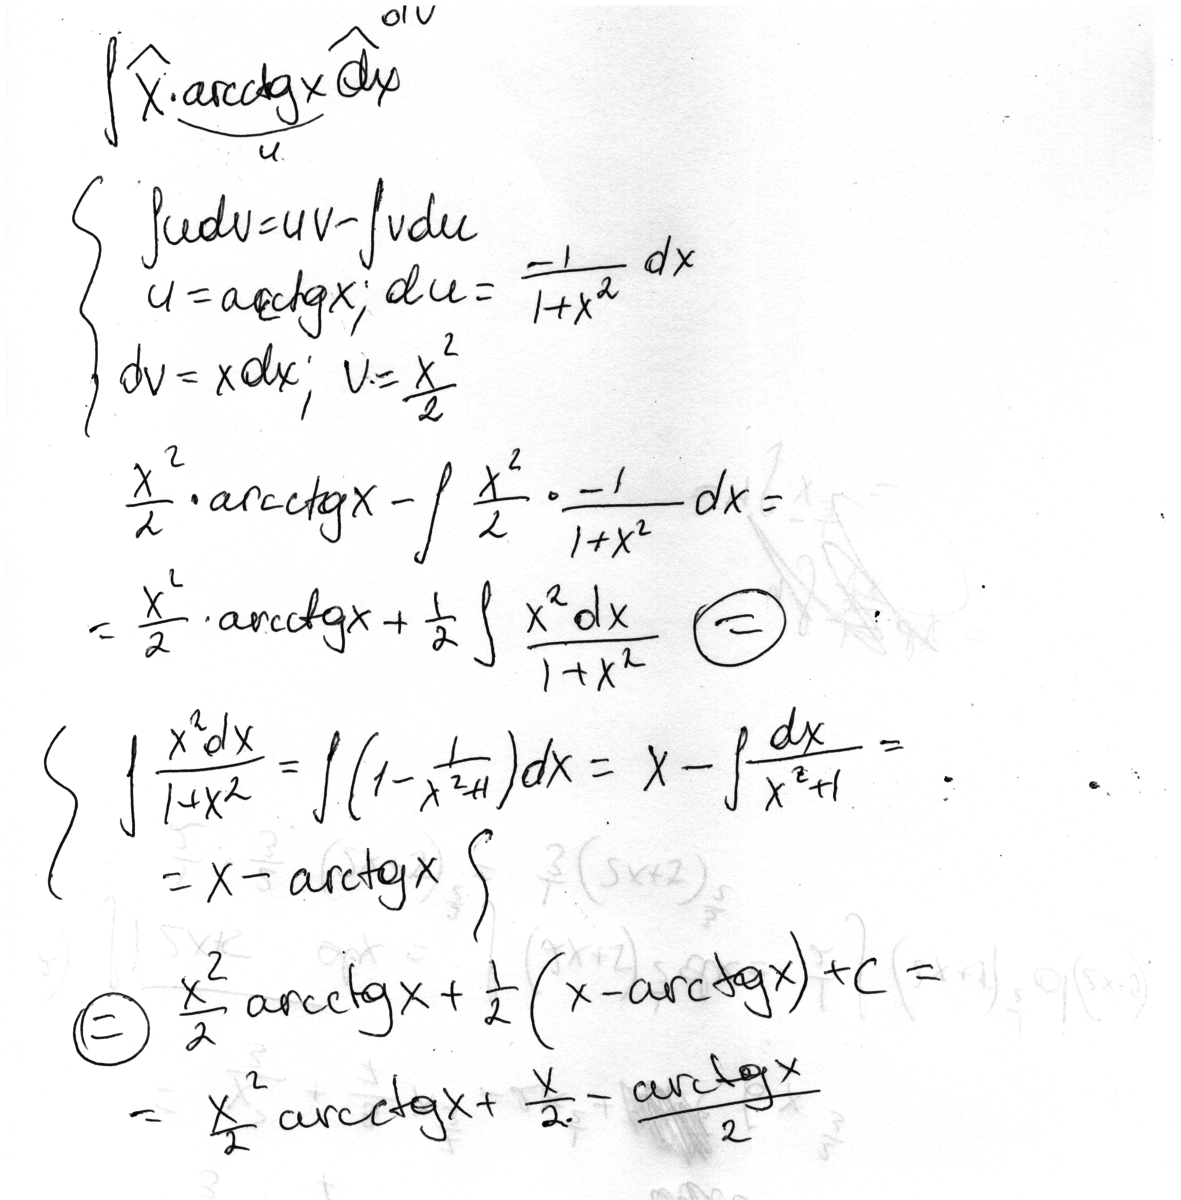 dv
∫ x · arcctg x dx
u
∫udv = uv - ∫vdu
u = arcctg x; du = -1/(1+x²) dx
dv = x dx; v = x²/2
x²/2 · arcctg x - ∫ x²/2 · -1/(1+x²) dx =
= x²/2 · arcctg x + 1/2 ∫ x²dx/(1+x²) =
{ ∫ x²dx/(1+x²) = ∫(1 - 1/(x²+1))dx = x - ∫ dx/(x²+1) =
= x - arctg x }
= x²/2 arcctg x + 1/2 (x - arctg x) + C =
= x²/2 arcctg x + x/2 - arctg x/2